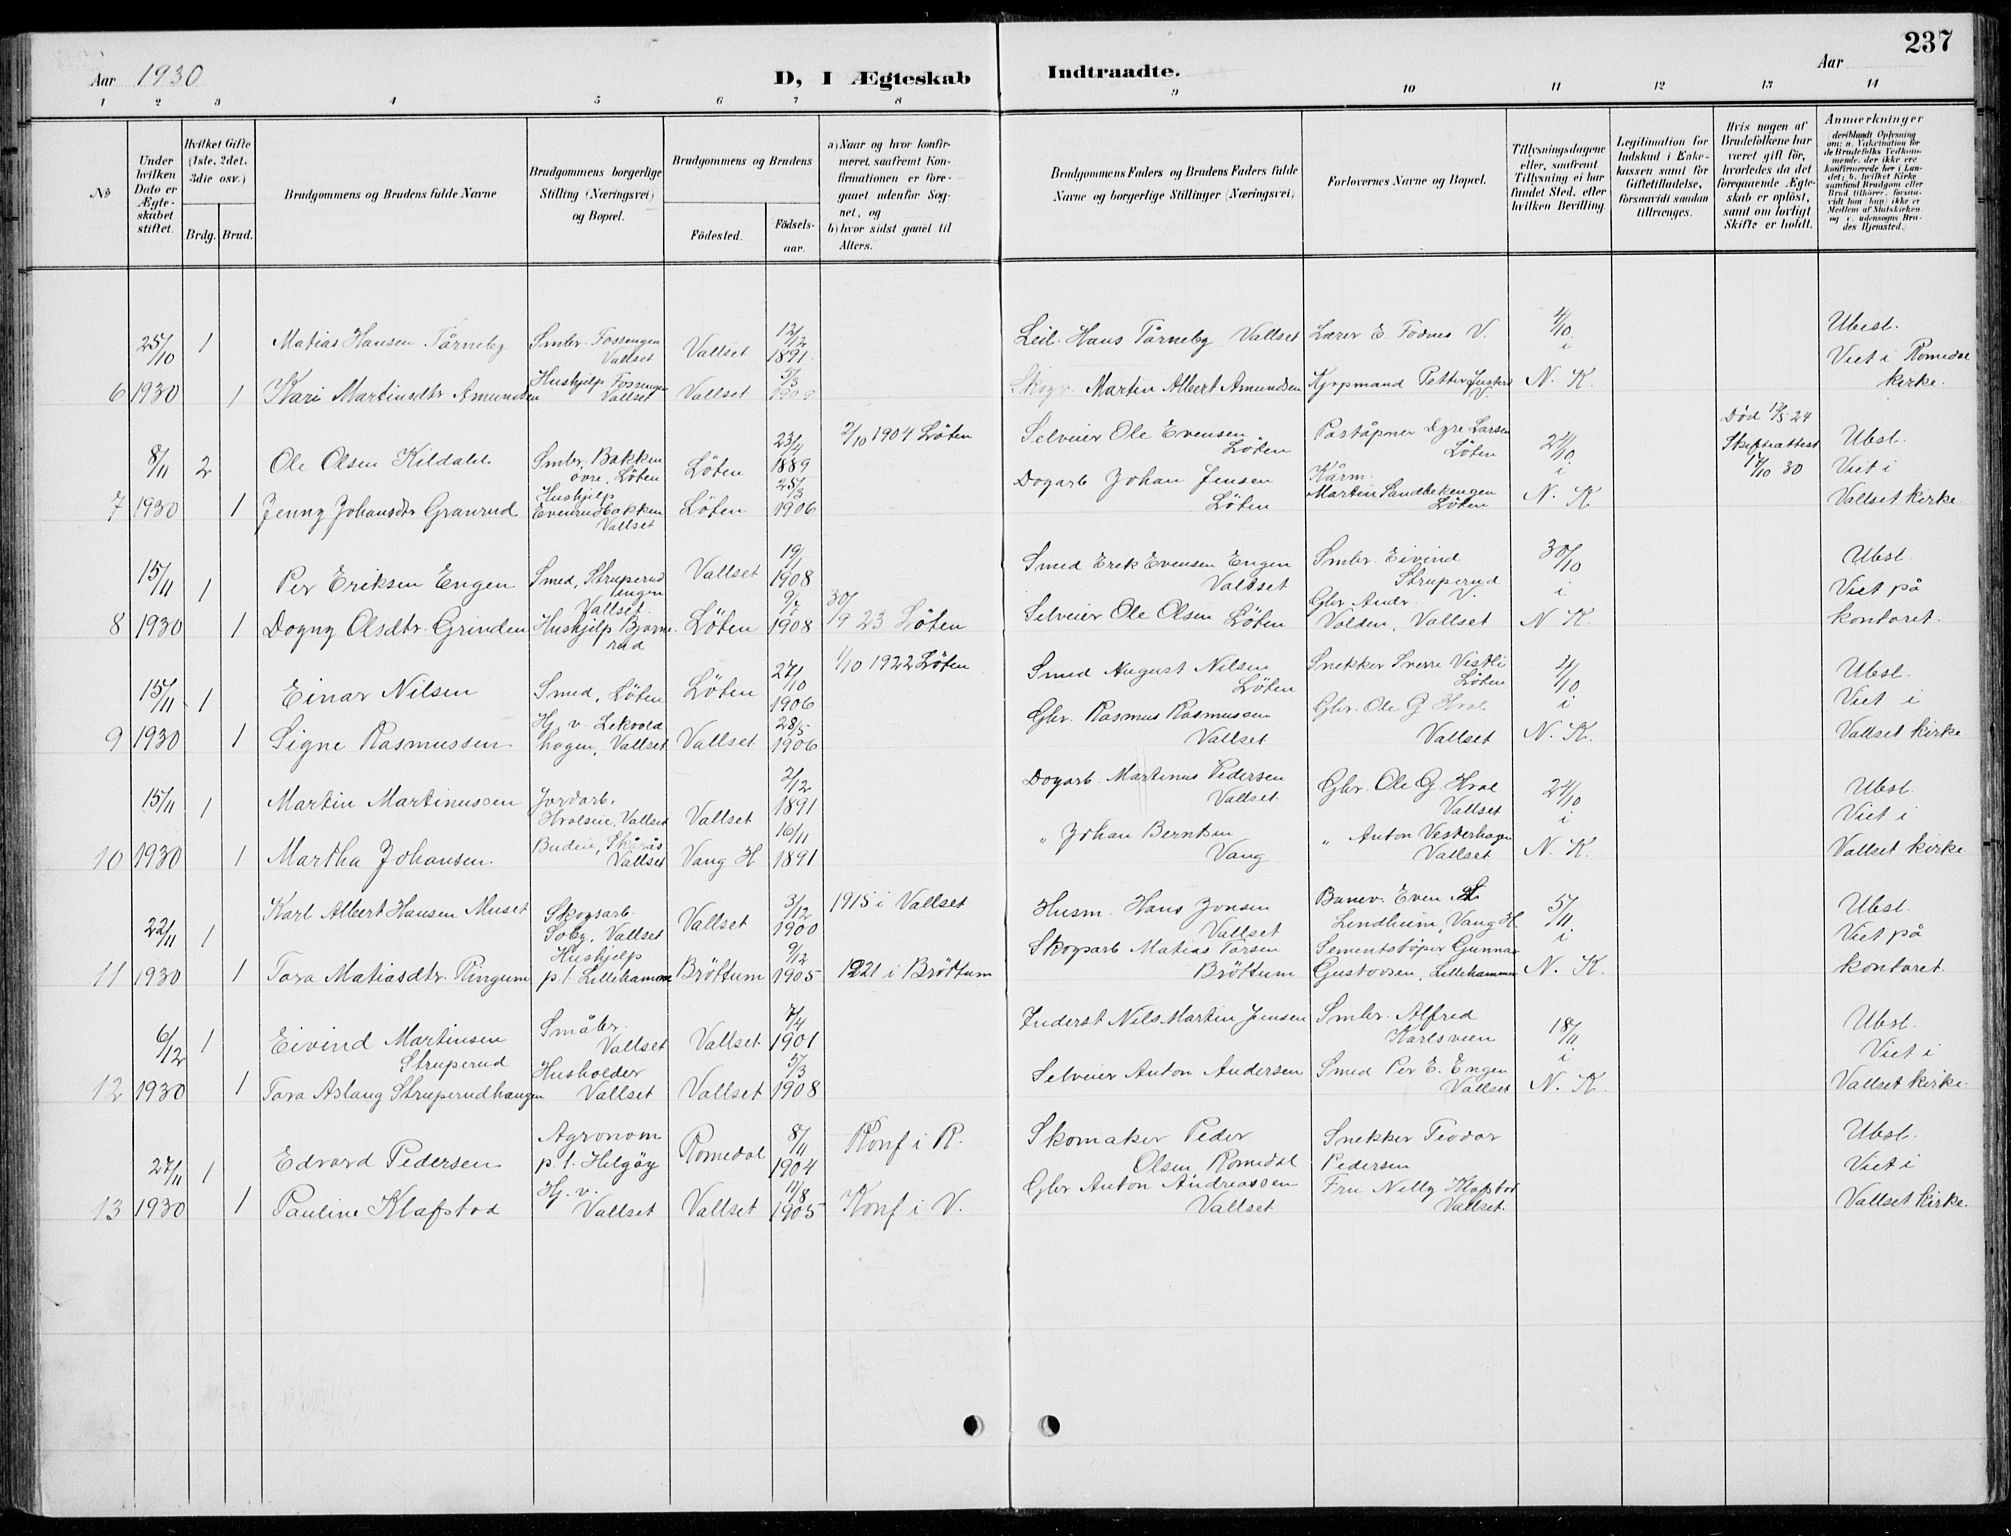 237
Aar 1930
D, I Ægteskab Indtraadte.
Aar
1 2 3 4 5 6 7 8 9 10 11 12 13 14
No
Under hvilken Dato er Ægteskabet stiftet.
Hvilket Gifte (1ste, 2det, 3die osv.)
Brdg. Brud.
Brudgommens og Brudens fulde Navne
Brudgommens borgerlige Stilling (Næringsvei) og Bopæl.
Brudgommens og Brudens
Födested. Födselsaar.
a) Naar og hvor konfirmeret, saafremt Konfirmationen er foregaaet udenfor Sognet, og
b) hvor sidst gaaet til Alters.
Brudgommens Faders og Brudens Faders fulde Navne og borgerlige Stillinger (Næringsvei).
Forlovernes Navne og Bopæl.
Tillysningsdagene eller, saafremt Tillysning ei har fundet Sted, efter hvilken Bevilling.
Legitimation for Indskud i Enkekassen samt for Giftetilladelse, forsaavidt saadan tiltrænges.
Hvis nogen af Brudefolkene har været gift för, hvorledes da det foregaaende Ægteskab er oplöst, samt om lovligt Skifte er holdt.
Anmærkninger (deriblandt Oplysning om: a. Vakcination for de Brudefolks Vedkommende, der ikke ere konfirmerede her i Landet; b. hvilket Kirkesamfund Brudgom eller Brud tilhörer, forsaavidt han (hun) ikke er Medlem af Statskirken, og c. udensogns Brudes Hjemsted.)
25/10 1 Matias Hansen Tårneby Smbr. Fossengen Vallset Vallset 12/12 1891 Leil. Hans Tårneby Vallset Lærer E. Fodnes V. 4/10 i Ubesl. Viet i Romedal kirke.
6 1930 1 Kari Martinsdtr Amundsen Hushjelp Fossengen Vallset Vallset 5/3 1909 Skogv. Martin Albert Amundsen Kjøpmand Petter N. K.
8/11 2 Ole Olsen Kildahl Smbr. Bakken øvre, Löten Löten 23/4 1889 2/10 1904 Löten Selveier Ole Evensen Löten Poståpner Dyre-Larsen Löten 24/10 i Död 12/5 24 Skifteattest 17/10 30 Ubsl. Viet i Vallset kirke
7 1930 1 Jenny Johansdtr Granrud Hushjelp Evenrudbakken Vallset Löten 28/3 1906 Dagarb Johan Jensen Löten Kårm. Martin Sandbekengen Löten N. K
15/11 1 Per Eriksen Engen Smed, Struperud ungen Vallset. Vallset 19/1 1908 Smed Erik Evensen Engen Vallset Smbr. Eivind Struperud V. 30/10 i Ubsl. Viet på kontoret.
8 1930 1 Dagny Olsdtr. Grinden Hushjelp Bjørnerud Löten 9/7 1908 30/9 23 Löten Selveier Ole Olsen Löten Gbr Andr. Volden, Vallset N K.
15/11 1 Einar Nilsen Smed, Löten Löten 27/10 1906 1/10 1922 Löten Smed August Nilsen Löten Snekker Sverre Vestli Löten 2/10 i Ubsl. Viet i Vallset kirke
9 1930 1 Signe Rasmussen Hj. v. Vallset Vallset 28/5 1906 Gbr. Rasmus Rasmussen Vallset Gbr. Ole G Hval Vallset N. K.
15/11 1 Martin Martinussen Jordarb. Hvalseie, Vallset Vallset 2/12 1891 Dagarb. Martinus Pedersen Vallset Gbr. Ole G. Hval Vallset 24/10 i Ubsl. Viet i Vallset kirke
10 1930 1 Martha Johansen Budeie, Vallset Vang H 16/11 1891 " Johan Berntsen Vang " Anton Vesterhagen Vallset N. K.
22/11 1 Karl Albert Hansen Muset Skogsarb. Soby, Vallset Vallset 3/12 1900 1915 i Vallset Husm. Hans Jonsen Vallset Banev. Even Lindheim, Vang H. 5/11 i Ubsl. Viet på kontoret.
11 1930 1 Tora Matiasdtr. Ringum Hushjelp p.t. Lillehammer Bröttum 9/12 1905 1921 i Bröttum Skogsarb Matias Torsen Bröttum Sementstöper Gunnar Gustavsen, Lillehammer N. K.
6/12 1 Eivind Martinsen Struperud Småbr. Vallset Vallset 7/4 1901 Inderst Nils Martin Jensen Smbr. Alfred Karlsveen 18/11 i Ubsl. Viet i Vallset kirke
12 1930 1 Tora Aslaug Struperudhaugen Husholder Vallset Vallset 5/3 1908 Selveier Anton Andersen Smed Per E. Engen Vallset N. K.
27/11 1 Edvard Pedersen Agronom p.t. Helgöy Romedal 8/11 1904 Konf i R. Skomaker Peder Olsen, Romedal Snekker Teodor Pedersen Ubsl. Viet i Vallset kirke.
13 1930 1 Pauline Klafstad Hj. v. Vallset Vallset 11/8 1905 Konf i V. Gbr Anton Andreassen Vallset Fru Nelly Klafstad Vallset.